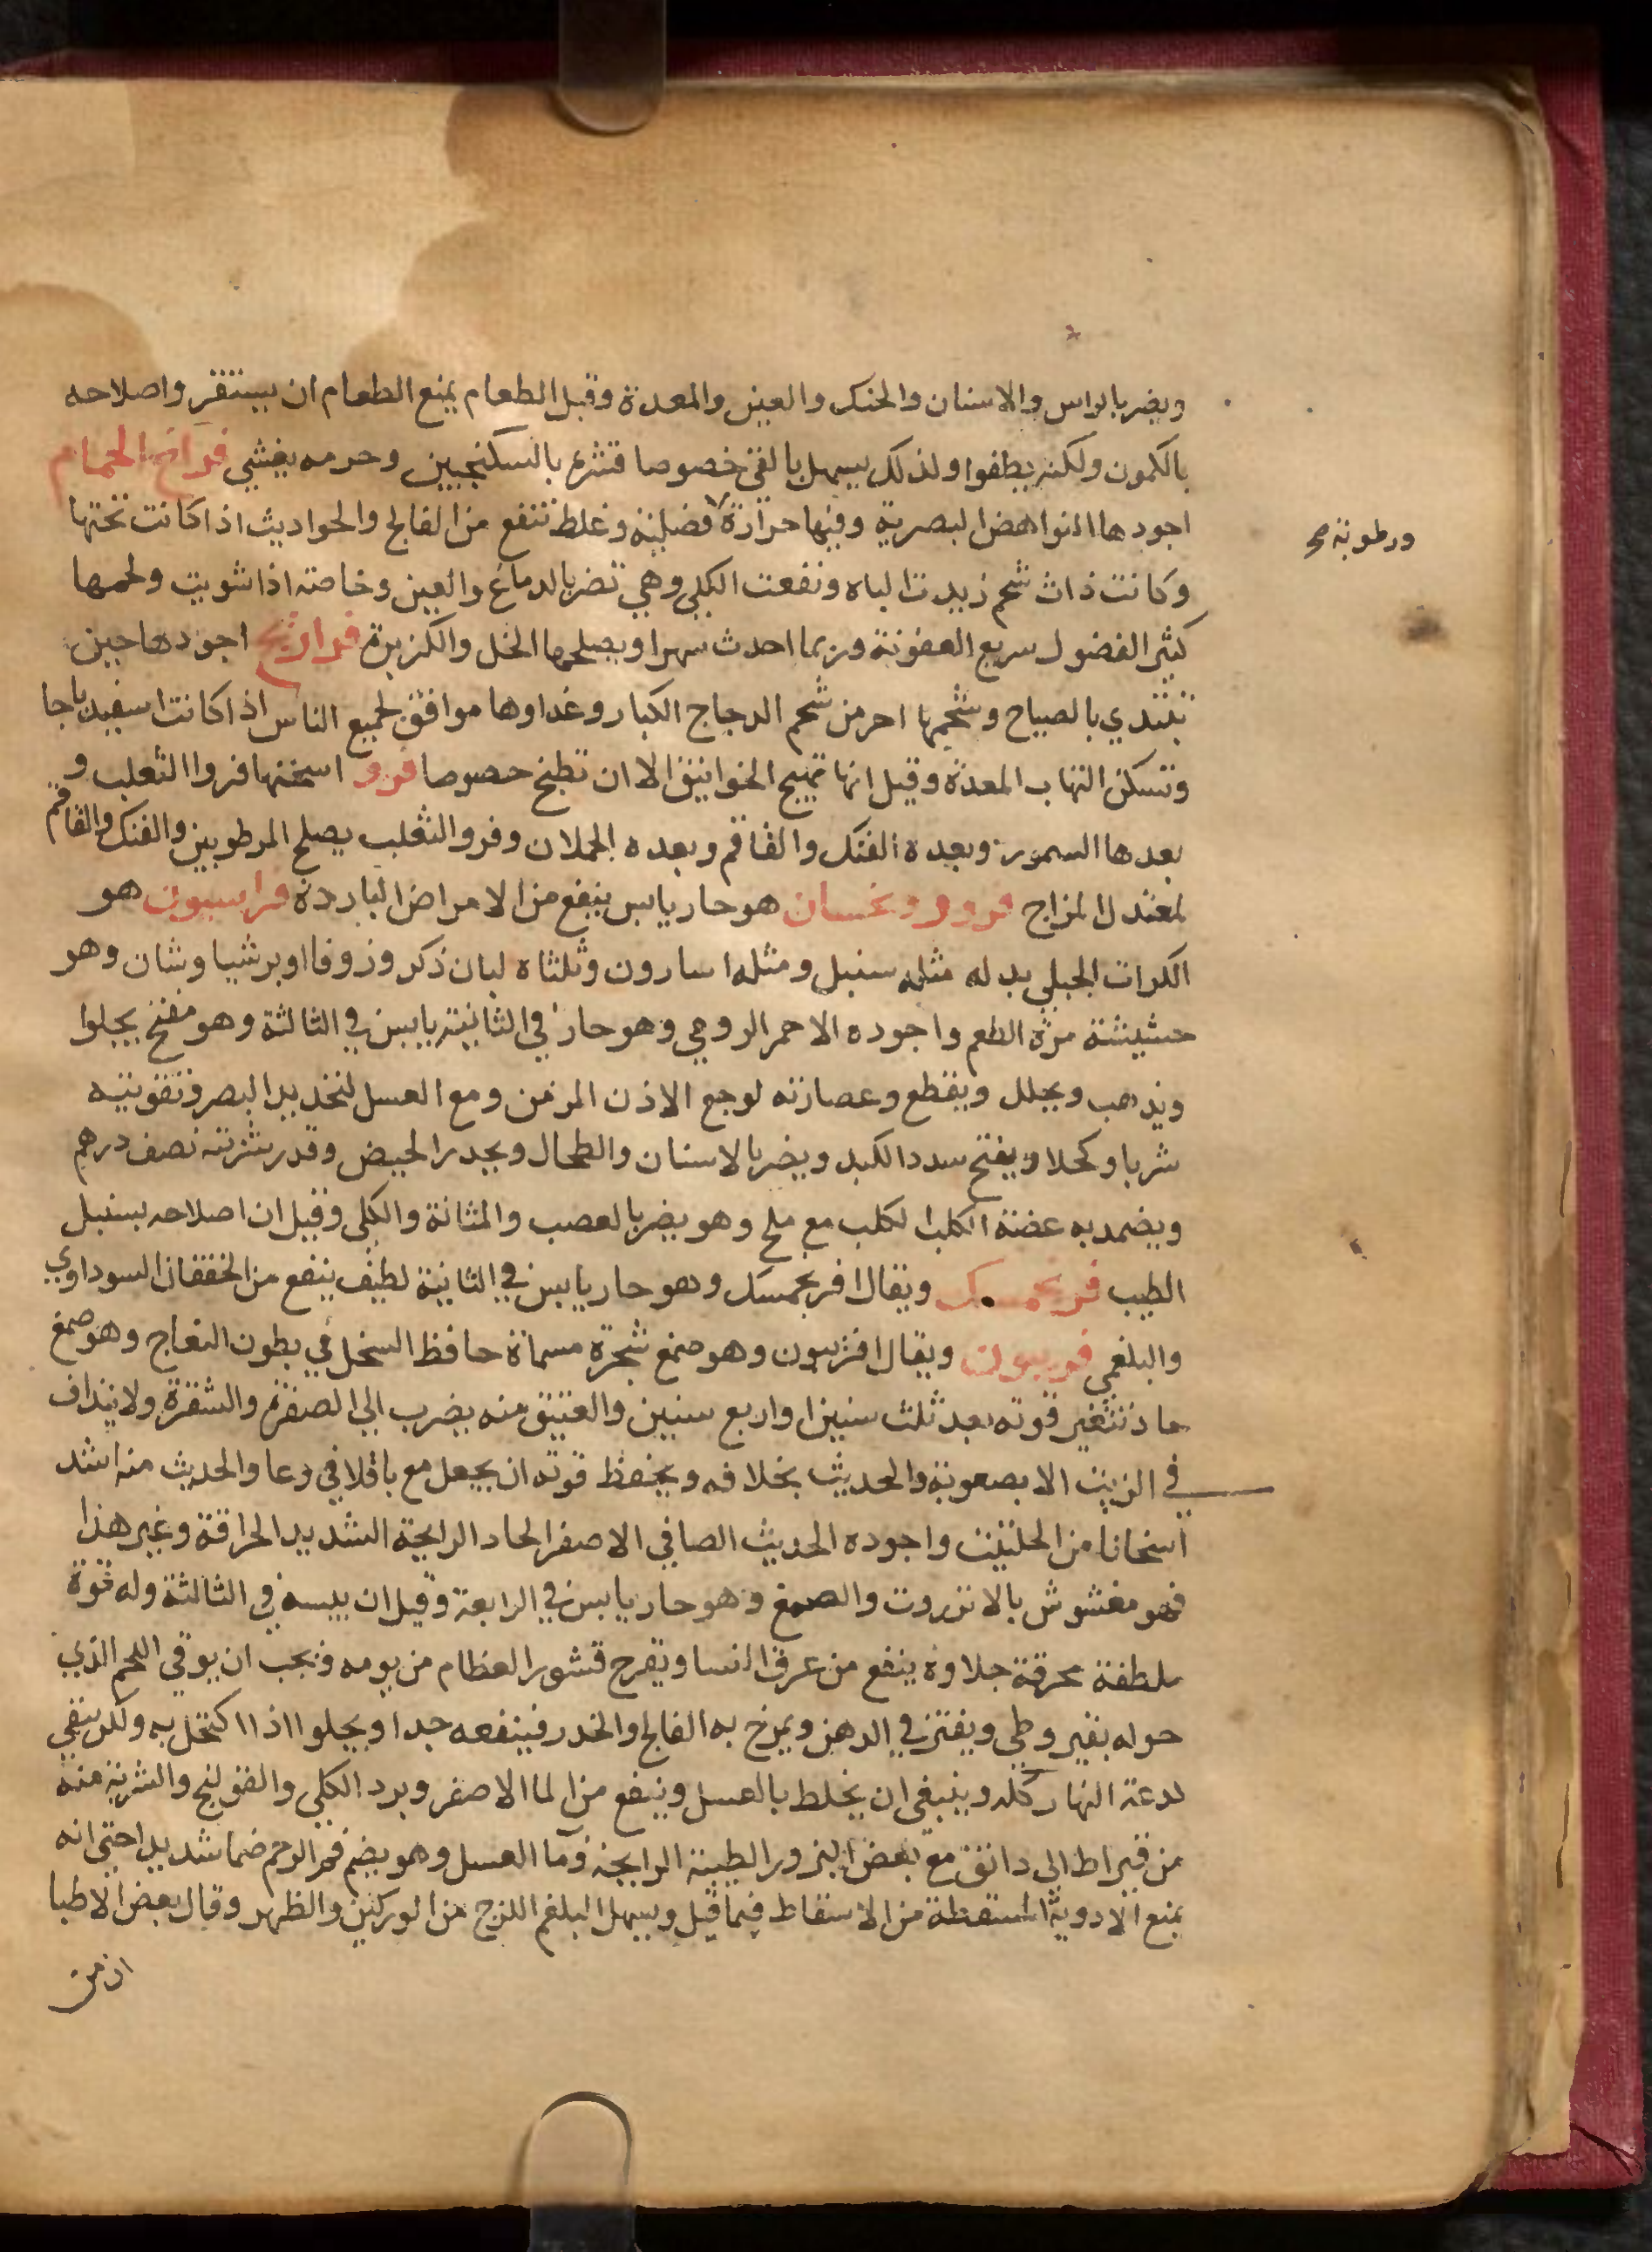 ويضر بالراس والاسنان والحنك والعين والمعدة وقبل الطعام يمنع الطعام ان يستقر واصلاحه
بالكمون ولكنه يطفوا ولذلك يسهل بالقي خصوصا قشره بالسكنجبين وحرمه يغثي فراخ الحمام
اجودها النواهض البصرية وفيها حرارة فضلية وغلظ تنفع من الفالج والحواديث اذا كانت تحتها
ورطوبة صح
وكانت ذات شحم زيدت الباه ونفعت الكلى وهي تضر بالدماغ والعين وخاصته اذا شويت ولحمها
كثير الفضول سريع العفونة وربما احدث سهرا ويصلحها الخل والكزبرة فراريج اجودها حين
تبتدي بالصياح وشحمها احر من شحم الدجاج الكبار وغداوها موافق لجميع الناس اذا كانت اسفيدباجا
وتسكن التهاب المعدة وقيل انها تهيج الخوانيق الا ان تطبخ حصوصا فرو اسخنها فروا الثعلب و
بعدها السمور وبعده الفنك والقاقم وبعده الحملان وفرو الثعلب يصلح المرطوبين والفنك والقاقم
لمعتدل المزاج هو حار يابس ينفع من الامراض الباردة فراسيون هو
الكراث الجبلي بدله مثله سنبل ومثله اسارون وثلثاه لبان ذكر وزوفا او برشيا وشان وهو
حشيشة مرة الطعم واجوده الاحمر الرومي وهو حار في الثانية يابس في الثالثة وهو مفتح يجلوا
ويذهب ويحلل ويقطع وعصارته لوجع الاذن المزمن ومع العسل لتحديد البصر وتقويته
شربا وكحلا ويفتح سدد الكبد ويضر بالاسنان والطحال ويحدر الحيض وقدر شربته نصف درهم
ويضمد به عضة الكلب الكلب مع ملح وهو يضر بالعصب والمثانة والكلى وقيل ان اصلاحه بسنبل
الطيب فرنجمسك ويقال افرنجمسك وهو حار يابس في الثانية لطيف ينفع من الخفقان السوداوي
والبلغمي فربيون ويقال افربيون وهو صمغ شجرة مسماة حافظ النخل في بطون النعاج وهو صمغ
حاد تتغير قوته بعد ثلث سنين او اربع سنين والعتيق منه يضرب الي الصفرة والشقرة ولا ينداف
في الزيت الا بصعوبة والحديث بخلافه ويحفظ قوته ان يجعل مع باقلا في وعا والحديث منه اشد
اسخانا من الحلتيت واجوده الحديث الصافي الاصفر الحاد الرايحة الشديد الحراقة وغير هذا
فهو مغشوش بالانزروت والصمغ وهو حار يابس في الرابعة وقيل ان يبسه في الثالثة وله قوة
ملطفة محرقة جلاوة ينفع من عرق النسا ويقرح قشور العظام من يومه فيجب ان يوقى اللحم الذي
حوله بقيروطي ويفتر في الدهن ويمرخ به الفالج والخدر فينفعه جدا ويجلوا اذا اكتحل به ولكن يبقي
لدعه النهار كله وينبغي ان يخلط بالعسل وينفع من الما الاصفر وبرد الكلي والقولنج والشربة منه
من قيراط الى دانق مع بعض البزور الطيبة الرايحة وما العسل وهو يضم فم الرحم ضما شديدا حتي انه
يمنع الادوية المسقطة من الاسقاط فيما قيل ويسهل البلغم اللزج من الوركين والظهر وقال بعض الاطبا